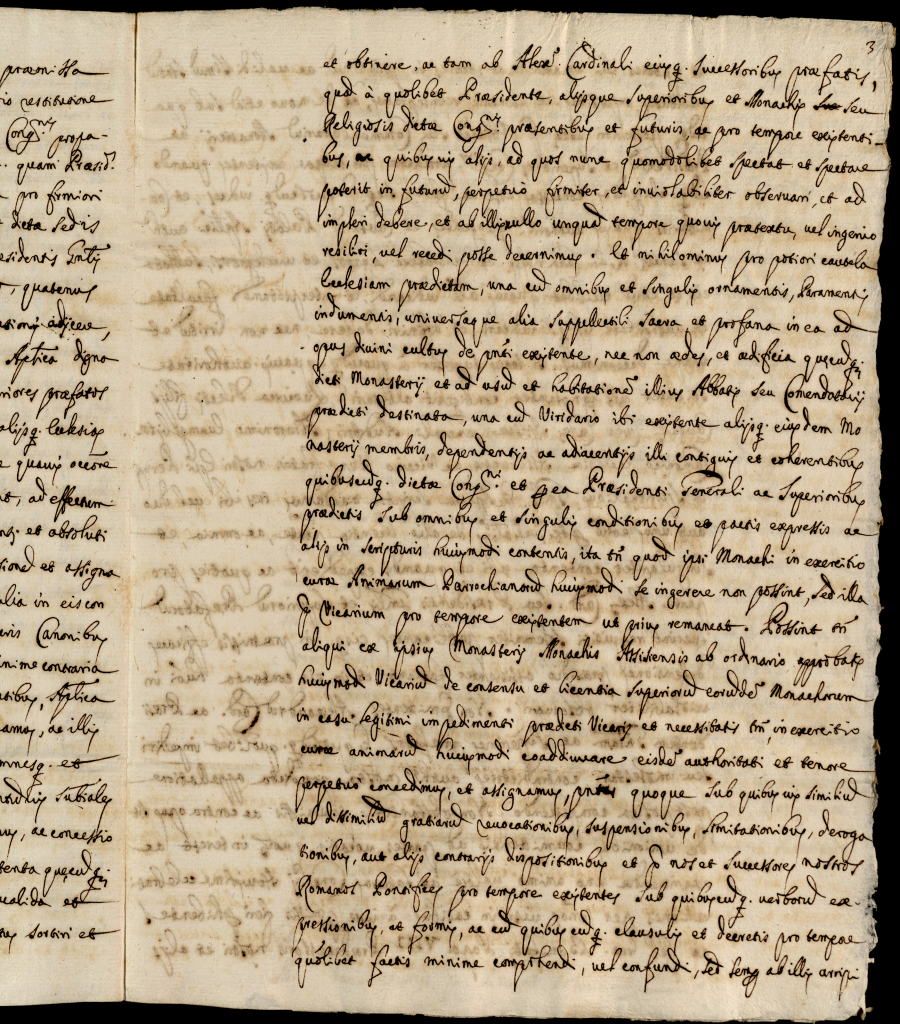 præmissa
rio restitutione
Cong.nis propa-
quam Præsid.
pro firmiori
dictæ Sedis
esidentis Gnlis
, quatenus
ationis adijcere,
Aplica digna
riores præfatos
alijsq. Ecclesias
e quavis occõne
nt, ad effectum
ns. et absoluti
tioned et assigna
alia in eis con
uris Canonibus
inime contraria
atibus, Aplica
amus, ac illis
mnesq. et
nordinis substales
us, ac concessio
tenta quæcũq.
valida et
tus sortiri et
3
et obtinere, ac tam ab Alexõ. Cardinali eiusq. successoribus præfatis,
quã à quolibet Præsidente, alijsque superioribus et Monachis seu
Religiosis dictæ Cong.nis præsentibus et futuris, ac pro tempore existenti-
bus, ac quibusuis alijs, ad quos nunc quomodolibet spectat et spectare
poterit in futurũ, perpetuò firmiter, et inuiolabiliter obseruari, et ad
impleri debere, et ab illis nullo unquã tempore quouis prætextu, uel ingenio
resiliri, uel recedi posse decernimus. Et nihilominus pro potiori cautela
Ecclesiam prædictam, una cũ omnibus et singulis ornamentis, Paramentis
indumentis, uniuersaque alia suppellectili sacra et profana in ea ad
opus diuini cultus de pñti existente, nec non ædes, et ædificia quæcũq.
dicti Monasterij et ad usũ et habitationẽ illius Abbatis seu Comendatarij
prædicti destinata, una cũ Viridario ibi existente alijsq. eiusdem Mo
nasterij membris, dependentijs ac adiacentijs illi contiguis et coherentibus
quibuscũq. dictæ Cong.ni et p ea Præsidenti Generali ac Superioribus
prædictis sub omnibus et singulis conditionibus et pactis expressis ac
alijs in scripturis huiusmodi contentis, ita tñ quod ipsi Monachi in exercitio
curæ Animarum Parrochianorũ huiusmodi se ingerere non possint, sed illa
p Vicarium pro tempore existentem ut prius remaneat. Possint tñ
aliqui ex ipsius Monasterij Monachis Assistensis ab ordinario approbatis
huiusmodi Vicariũ de consensu et licentia superiorũ eorũdẽ Monachorum
in casu legitimi impedimenti prædicti Vicarij et necessitatis tñ, in exercitio
curæ animarũ huiusmodi coadiuuare eisdẽ authoritati et tenore
perpetuò concedimus, et assignamus, pñtes quoque sub quibusuis similiũ
uel dissimiliũ gratiarũ reuocationibus, suspensionibus, limitationibus, deroga
tionibus, aut alijs contrarijs dispositionibus et p nos et successores nostros
Romanos Pontifices pro tempore existentes sub quibuscũq. uerborũ ex-
pressionibus, et formis, ac cũ quibuscũq. clausulis et decretis pro tempore
quõlibet factis minime comprehendi, uel confundi, sed semp ab illis arripi